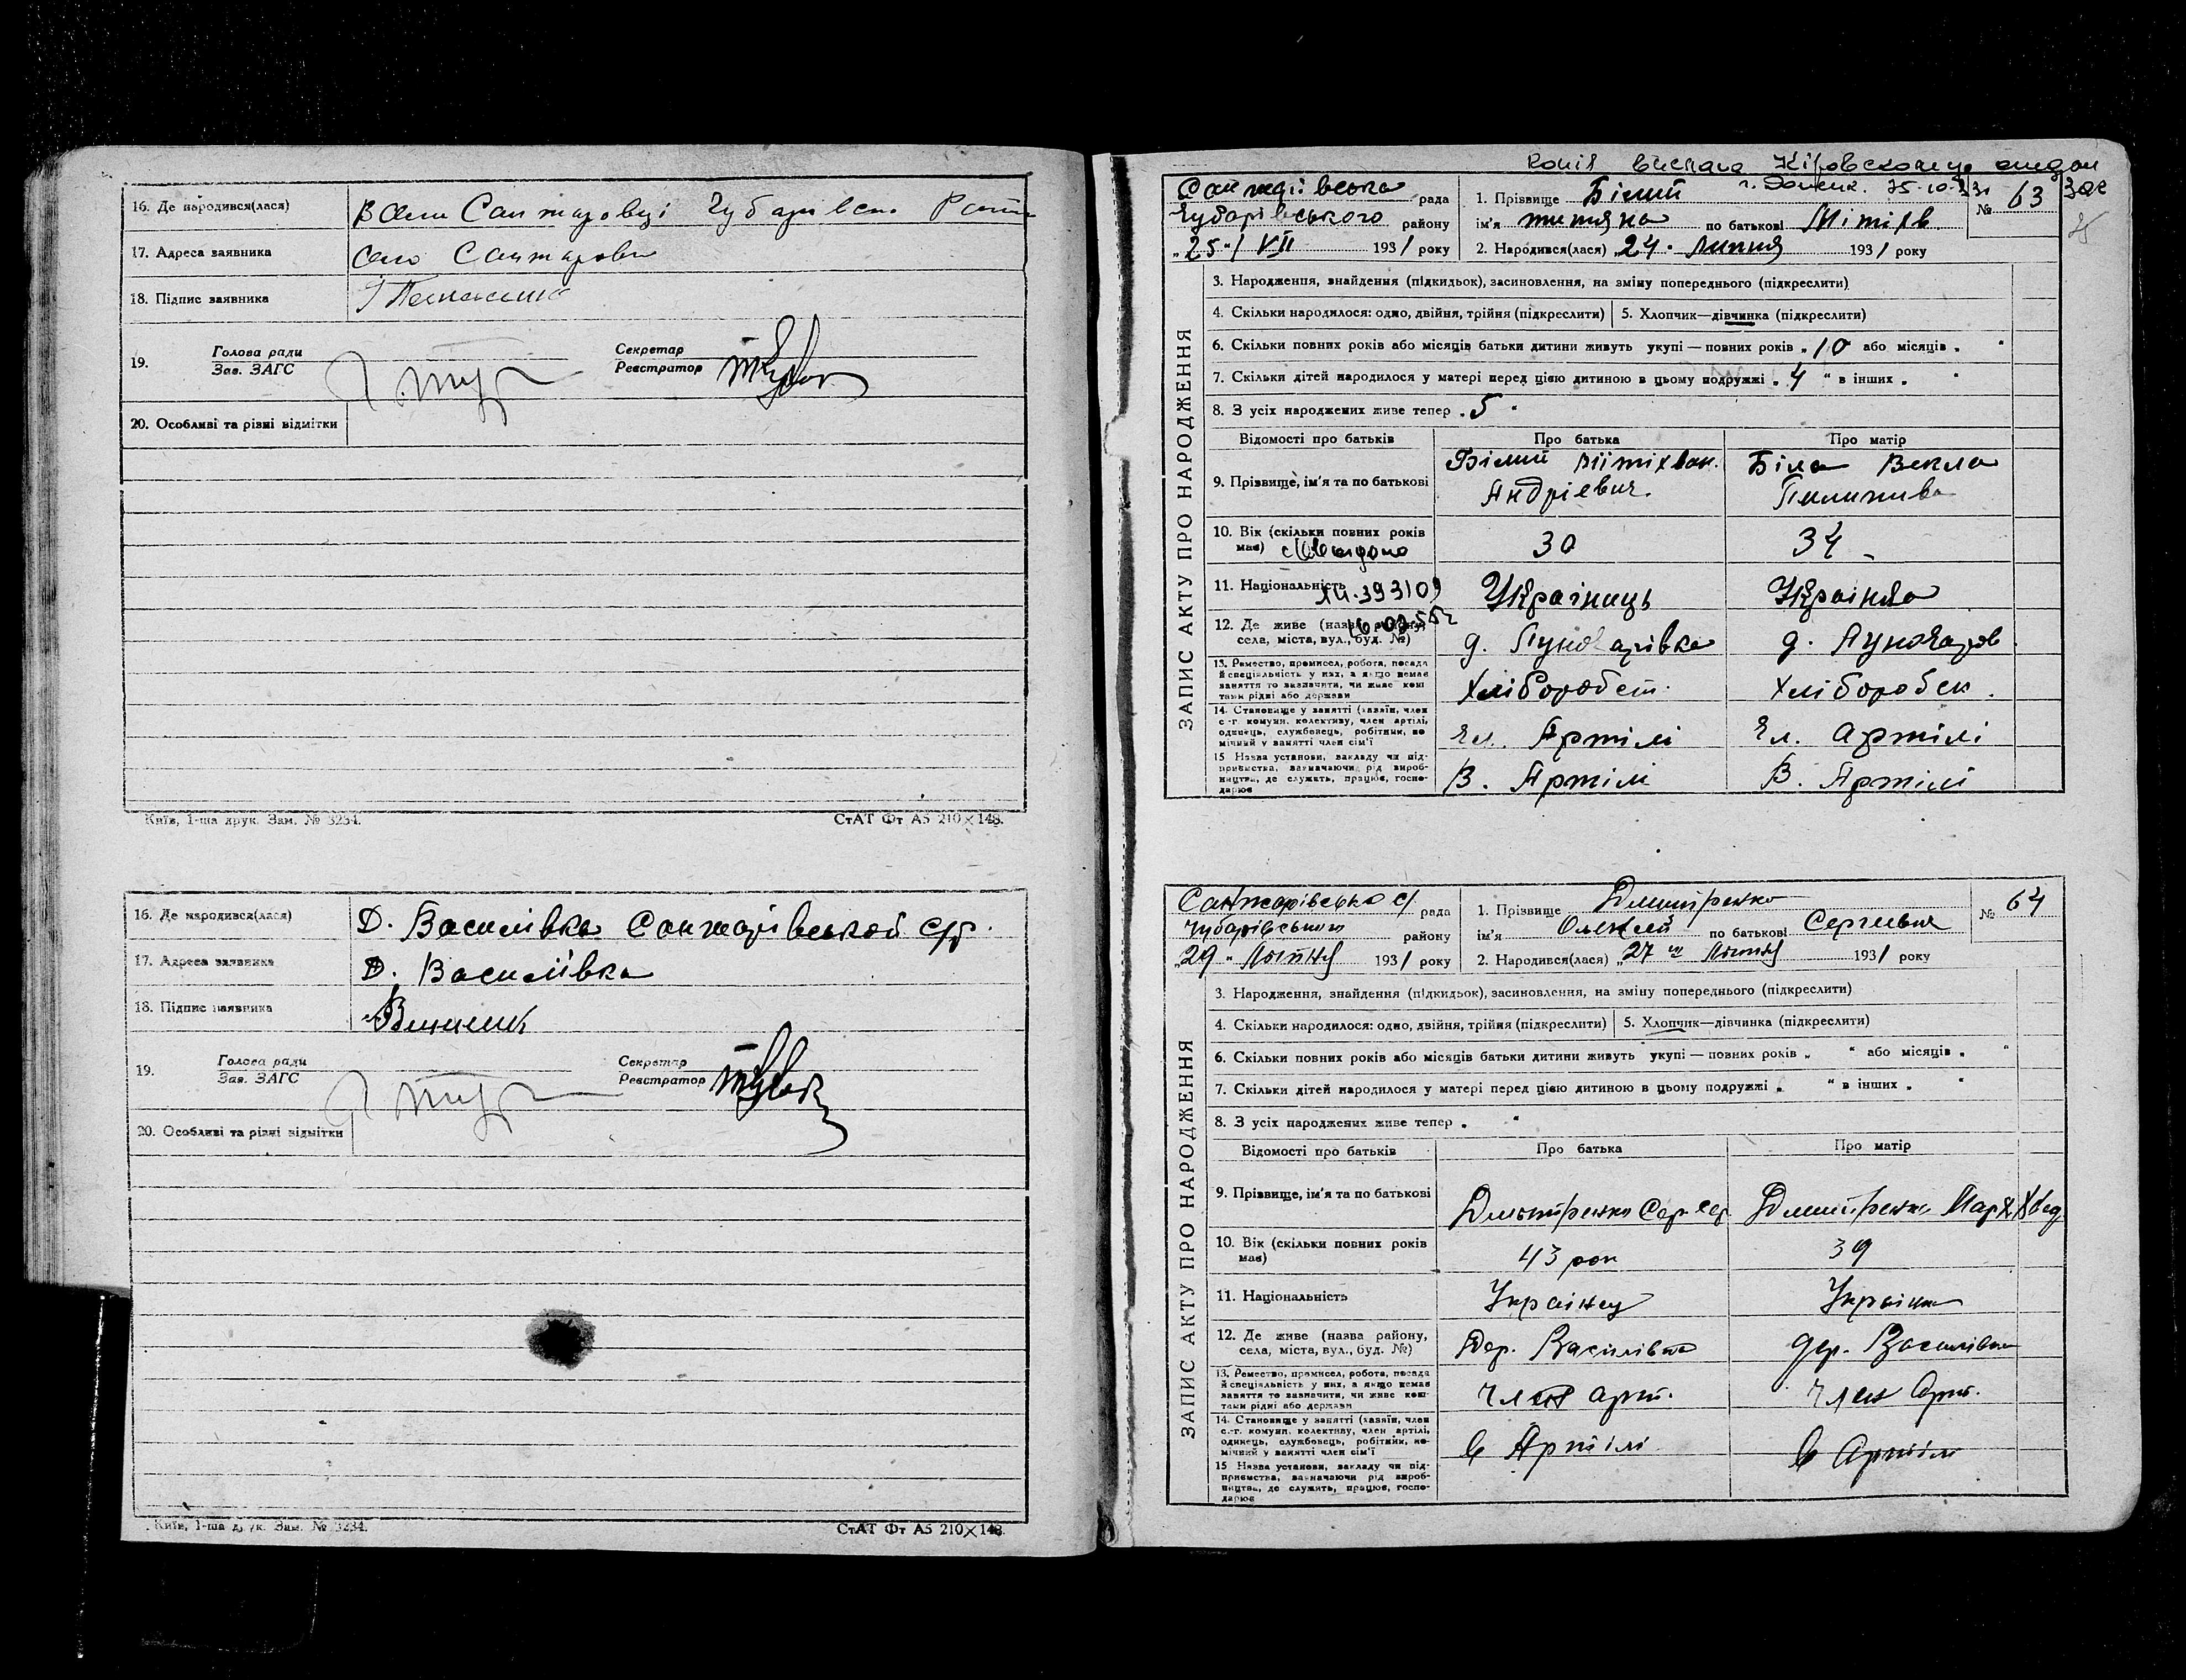 16. Де народився(лася) В селі Санжаровці Чубарівськ. Рай
17. Адреса заявника село Санжаровк
18. Підпис заявника
19. Голова ради Секретар
Зав. ЗАГС Реєстратор
20. Особливі та різні відмітки
Київ, 1-ша друк. Зам. № 3234. СтАТ Фт А5 210×148.
16. Де народився(лася) Д. Василівка Санжарівської с/р.
17. Адреса заявника Д. Василівка
18. Підпис заявника
19. Голова ради Секретар
Зав. ЗАГС Реєстратор
20. Особливі та різні відмітки
Київ, 1-ша друк. Зам. № 3234. СтАТ Фт А5 210×148.
Копія вислана Кіровскому
г. Донецк. 25-10-
Санжарівська рада 1. Прізвище Білий № 63
Чубарівського району ім'я по батькові Мітіхв
„25“ VII 1931 року 2. Народився(лася) „24“ Липня 1931 року
ЗАПИС АКТУ ПРО НАРОДЖЕННЯ
3. Народження, знайдення (підкидьок), засиновлення, на зміну попереднього (підкреслити)
4. Скільки народилося: одно, двійня, трійня (підкреслити) 5. Хлопчик—дівчинка (підкреслити)
6. Скільки повних років або місяців батьки дитини живуть укупі — повних років „10 або місяців „ “
7. Скільки дітей народилося у матері перед цією дитиною в цьому подружжі „4 “ в інших „ “
8. З усіх народжених живе тепер „5“
Відомості про батьків Про батька Про матір
9. Прізвище, ім'я та по батькові Білий Мітіхван. Біла Векла
Андрієвич.
10. Вік (скільки повних років має) 30 34
11. Національність Українець Українка
ЯЩ.393109
12. Де живе (назва району, села, міста, вул., буд. №) д. Луночарівка д. Луночаров
13. Ремество, промисел, робота, посада й спеціяльність у них, а якщо немає заняття то визначити, чи живе коштами рідні або держави Хлібороб Хлібороб
14. Становище у занятті (хазяїн, член с.-г. комуни, колективу, член артілі, одинець, службовець, робітник, помічний у занятті член сім'ї Чл. Артілі Чл. Артілі
15 Назва установи, закладу чи підприємства, зазначаючи рід виробництва, де служить, працює, господарює В. Артілі В. Артілі
Санжарівська с/ рада 1. Прізвище Дмитренко № 64
Чубарівськом району ім'я Олексій по батькові Сергиевич
„29“ Липня 1931 року 2. Народився(лася) „27“ Липня 1931 року
ЗАПИС АКТУ ПРО НАРОДЖЕННЯ
3. Народження, знайдення (підкидьок), засиновлення, на зміну попереднього (підкреслити)
4. Скільки народилося: одно, двійня, трійня (підкреслити) 5. Хлопчик—дівчинка (підкреслити)
6. Скільки повних років або місяців батьки дитини живуть укупі — повних років „ “ або місяців „ “
7. Скільки дітей народилося у матері перед цією дитиною в цьому подружжі „ “ в інших „ “
8. З усіх народжених живе тепер „ “
Відомості про батьків Про батька Про матір
9. Прізвище, ім'я та по батькові Дмитренко Сер. Дмитренко Мар
10. Вік (скільки повних років має) 43 рок 39
11. Національність Українец Українк
12. Де живе (назва району, села, міста, вул., буд. №) Дер. Василівка Дер. Василівка
13. Ремество, промисел, робота, посада й спеціяльність у них, а якщо немає заняття то визначити, чи живе коштами рідні або держави Член арт. Член Арт.
14. Становище у занятті (хазяїн, член с.-г. комуни, колективу, член артілі, одинець, службовець, робітник, помічний у занятті член сім'ї в Артілі в Артіли
15 Назва установи, закладу чи підприємства, зазначаючи рід виробництва, де служить, працює, господарює